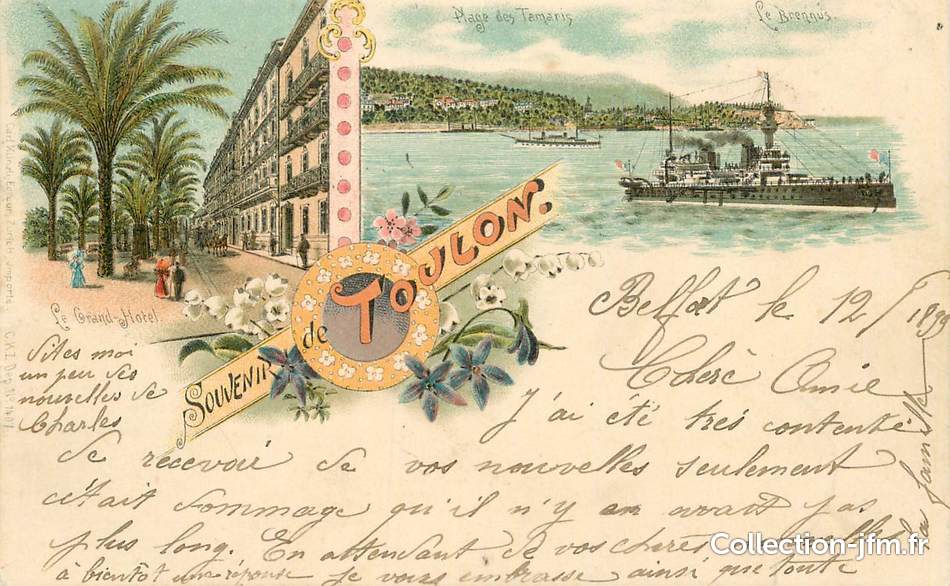 Plage des Tamaris
Le Brennus
Le Grand-Hôtel
SOUVENIR de TOULON.
Belfort le 12
Chère Amie
J'ai été très contente
de recevoir de vos nouvelles seulement
c'était dommage qu'il n'y en avait pas
plus long. En attendant de vos chères nouvelles
à bientôt une réponse je vous embrasse ainsi que toute
la famille
Dites moi
un peu des
nouvelles de
Charles
Collection-jfm.fr